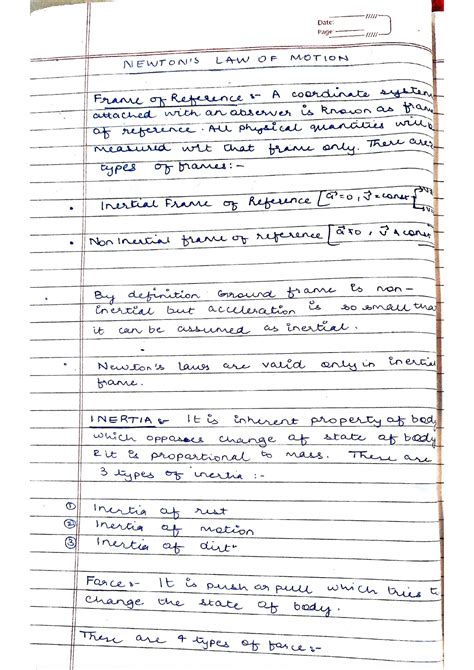 Date:
Page:
NEWTON'S LAW OF MOTION
Frame of Reference :- A coordinate system
attached with an observer is known as fram
of reference. All physical quantities will b
measured wrt that frame only. There are
types of frames:-
• Inertial Frame of Reference [a⃗=0, v⃗=const
• Non Inertial frame of reference [a⃗≠0, v⃗≠const
By definition Ground frame is non-
inertial but acceleration is so small tha
it can be assumed as inertial.
• Newton's laws are valid only in inertia
frame.
INERTIA :- It is inherent property of body
which opposes change of state of body
& it is proportional to mass. There are
3 types of inertia :-
① Inertia of rest
② Inertia of motion
③ Inertia of dirt"
Force :- It is push or pull which tries t
change the state of body.
There are 4 types of force :-